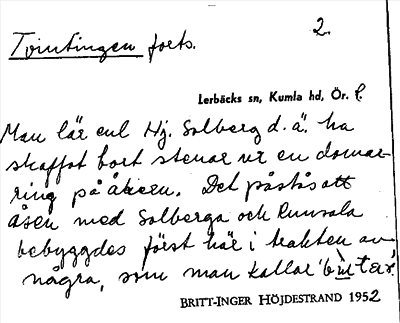 Tvintingen forts. 2.
Lerbäcks sn, Kumla hd, Ör. l.
Man lär enl Hj. Solberg d.ä. ha
skaffat bort stenar ur en domar-
ring på åkern. Det påstås att
åsen med Solberga och Runsala
bebyggdes först här i trakten av
några, som man kallar
BRITT-INGER HÖJDESTRAND 1952